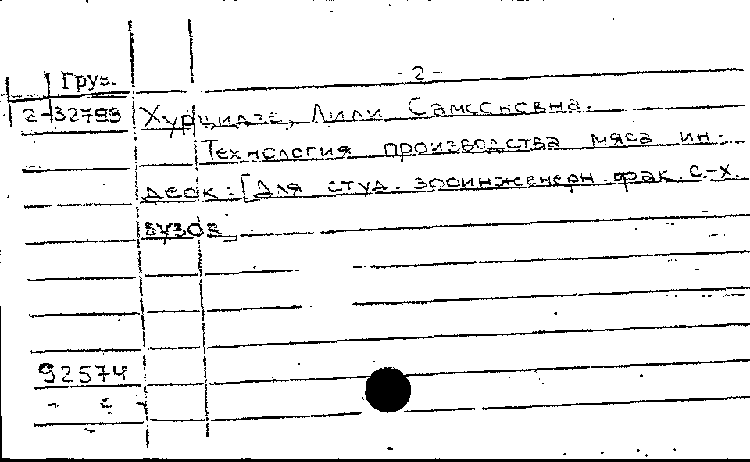 Груз. - 2 -
2-32799 Хурцидзе, Лили Самсоновна.
Технология производства мяса ин-
деек: [Для студ. зооинженерн. фак. с-х.
вузов
92574